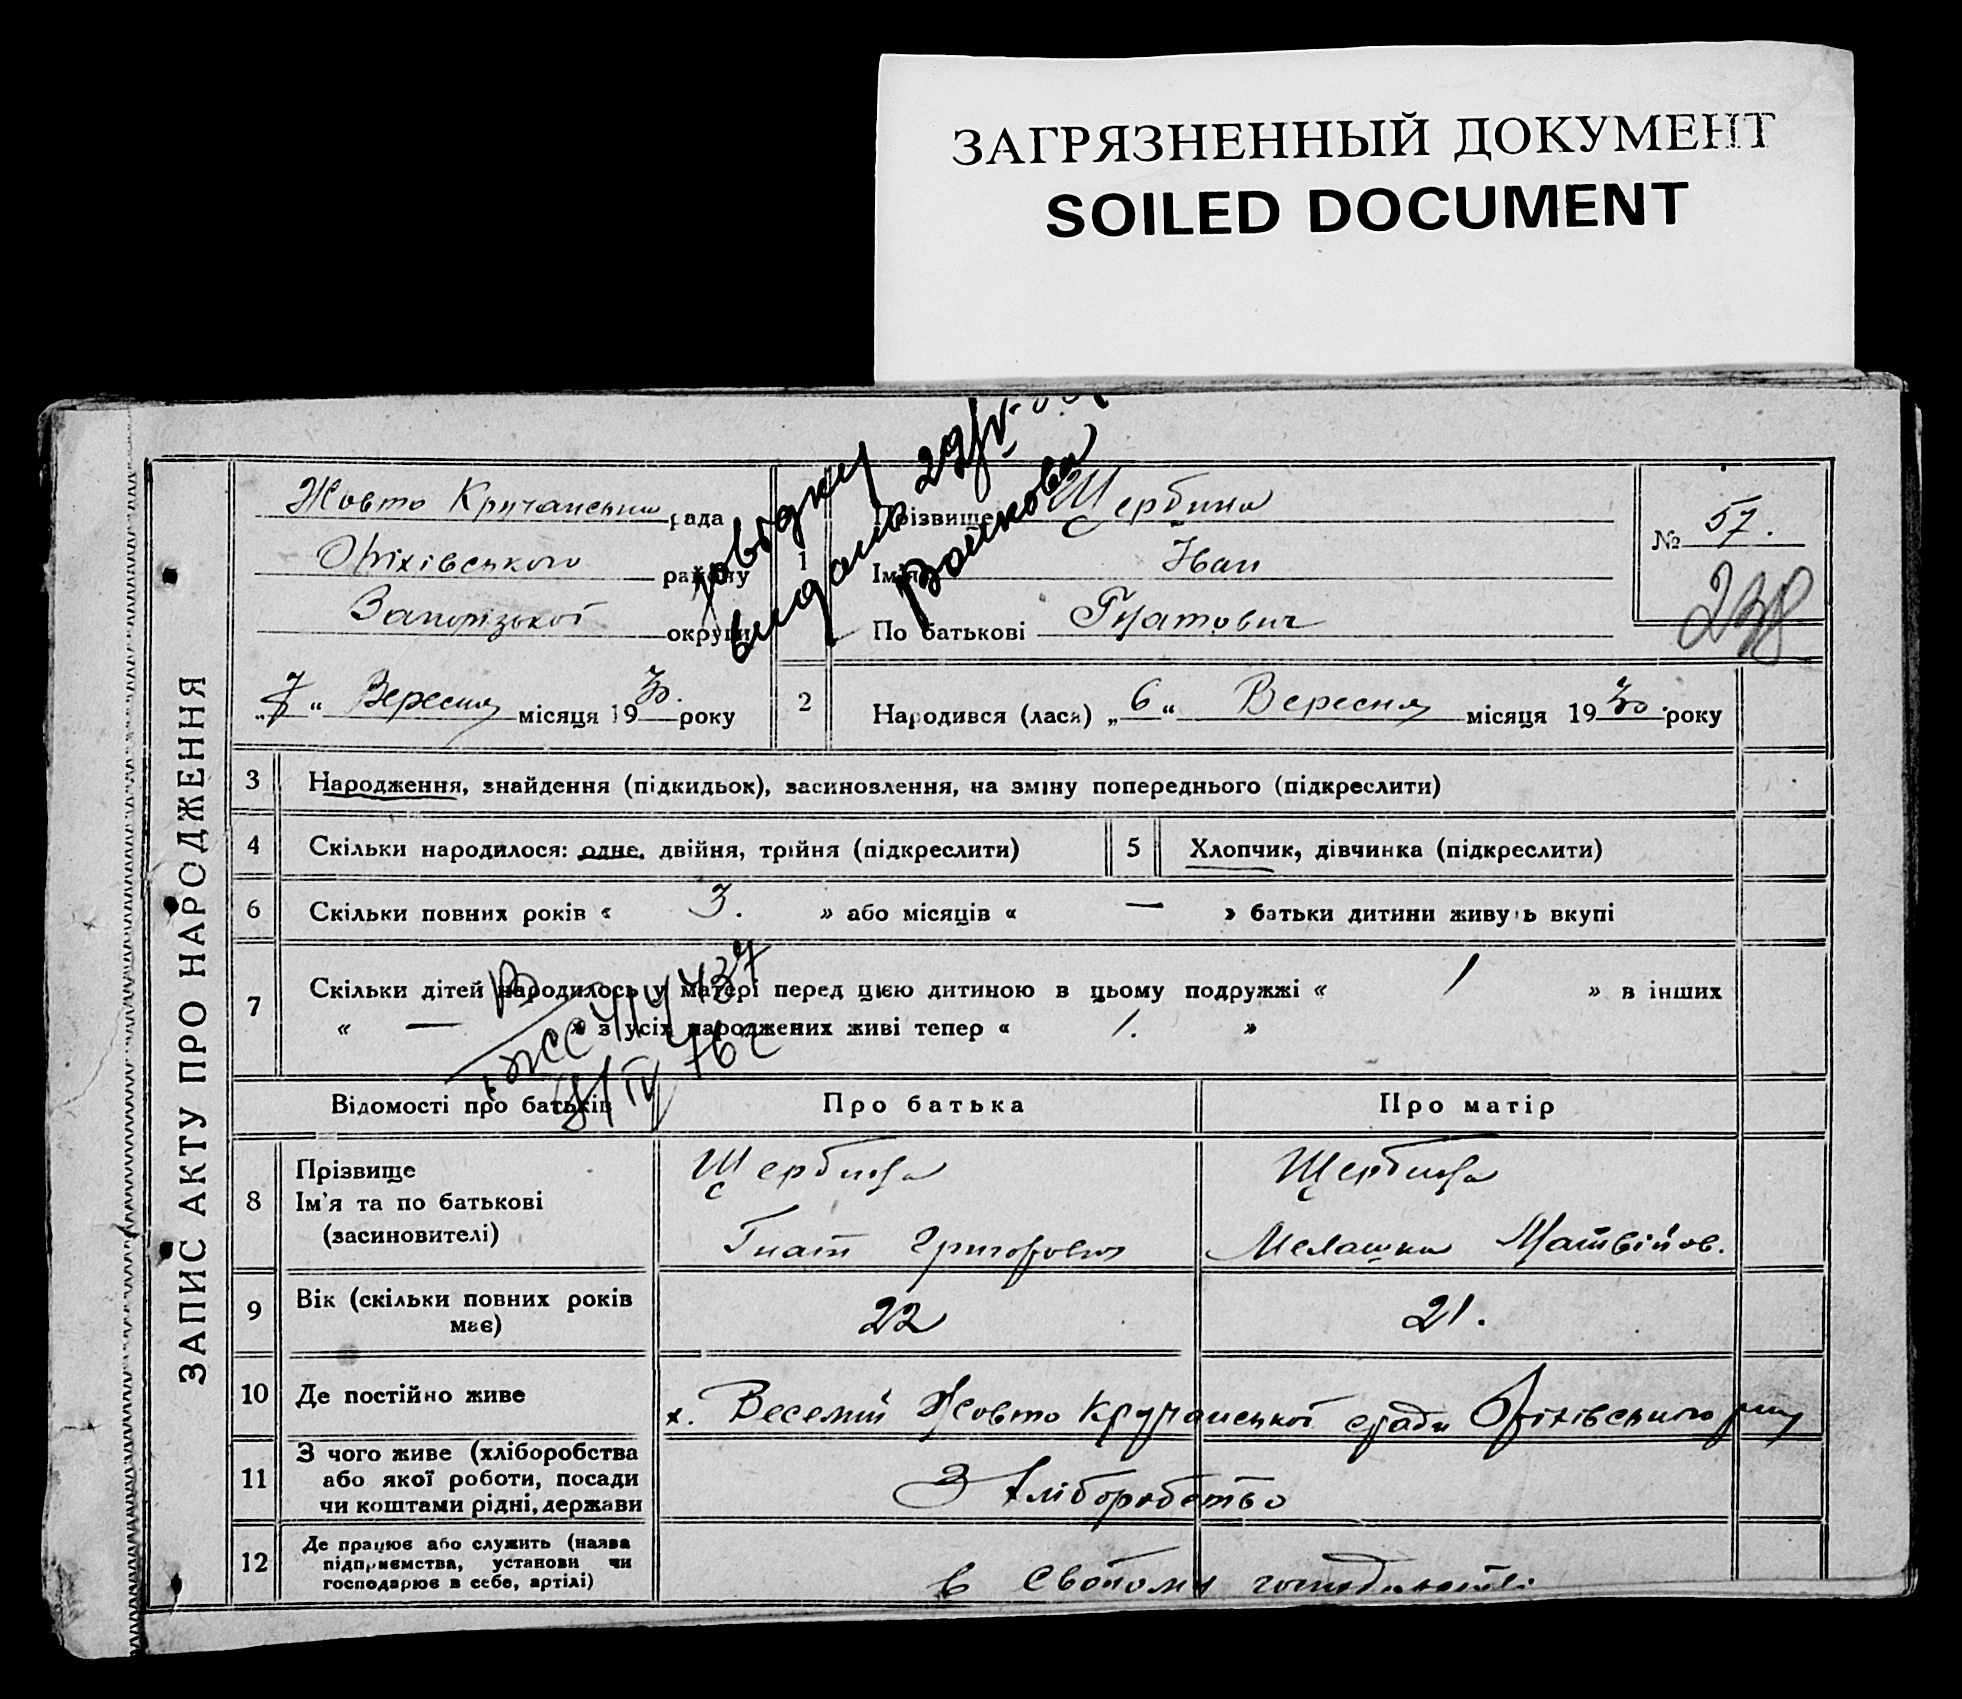 ЗАГРЯЗНЕННЫЙ ДОКУМЕНТ
SOILED DOCUMENT
ЗАПИС АКТУ ПРО НАРОДЖЕННЯ
Жовто Кручанська рада
Оріхівського району
Запорізької округи
„7“ Вересня місяця 1930. року
1
Прізвище Щербина
Ім'я Иван
По батькові Гнатович
№ 57.
238
довідку
видано 29/V
Войкова
2 Народився (лася) „6“ Вересня місяця 1930. року
3 Народження, знайдення (підкидьок), засиновлення, на зміну попереднього (підкреслити)
4 Скільки народилося: одне, двійня, трійня (підкреслити) 5 Хлопчик, дівчинка (підкреслити)
6 Скільки повних років « 3. » або місяців « — » батьки дитини живуть вкупі
7 Скільки дітей народилось у матері перед цією дитиною в цьому подружжі « 1 » в інших
« — » з усіх народжених живі тепер « 1. »
76
Відомості про батьків Про батька Про матір
8 Прізвище
Ім'я та по батькові
(засиновителі)
Щербина
Гнат Григорович
Щербина
Мелашка Матвійов.
9 Вік (скільки повних років
має)
22 21.
10 Де постійно живе х. Веселий Жовто Кручанської сради Оріхівського р-ну
11 З чого живе (хліборобства
або якої роботи, посади
чи коштами рідні, держави
З хліборобство
12 Де працює або служить (назва
підприємства, установи чи
господарює в себе, артілі)
в своїому господарстві